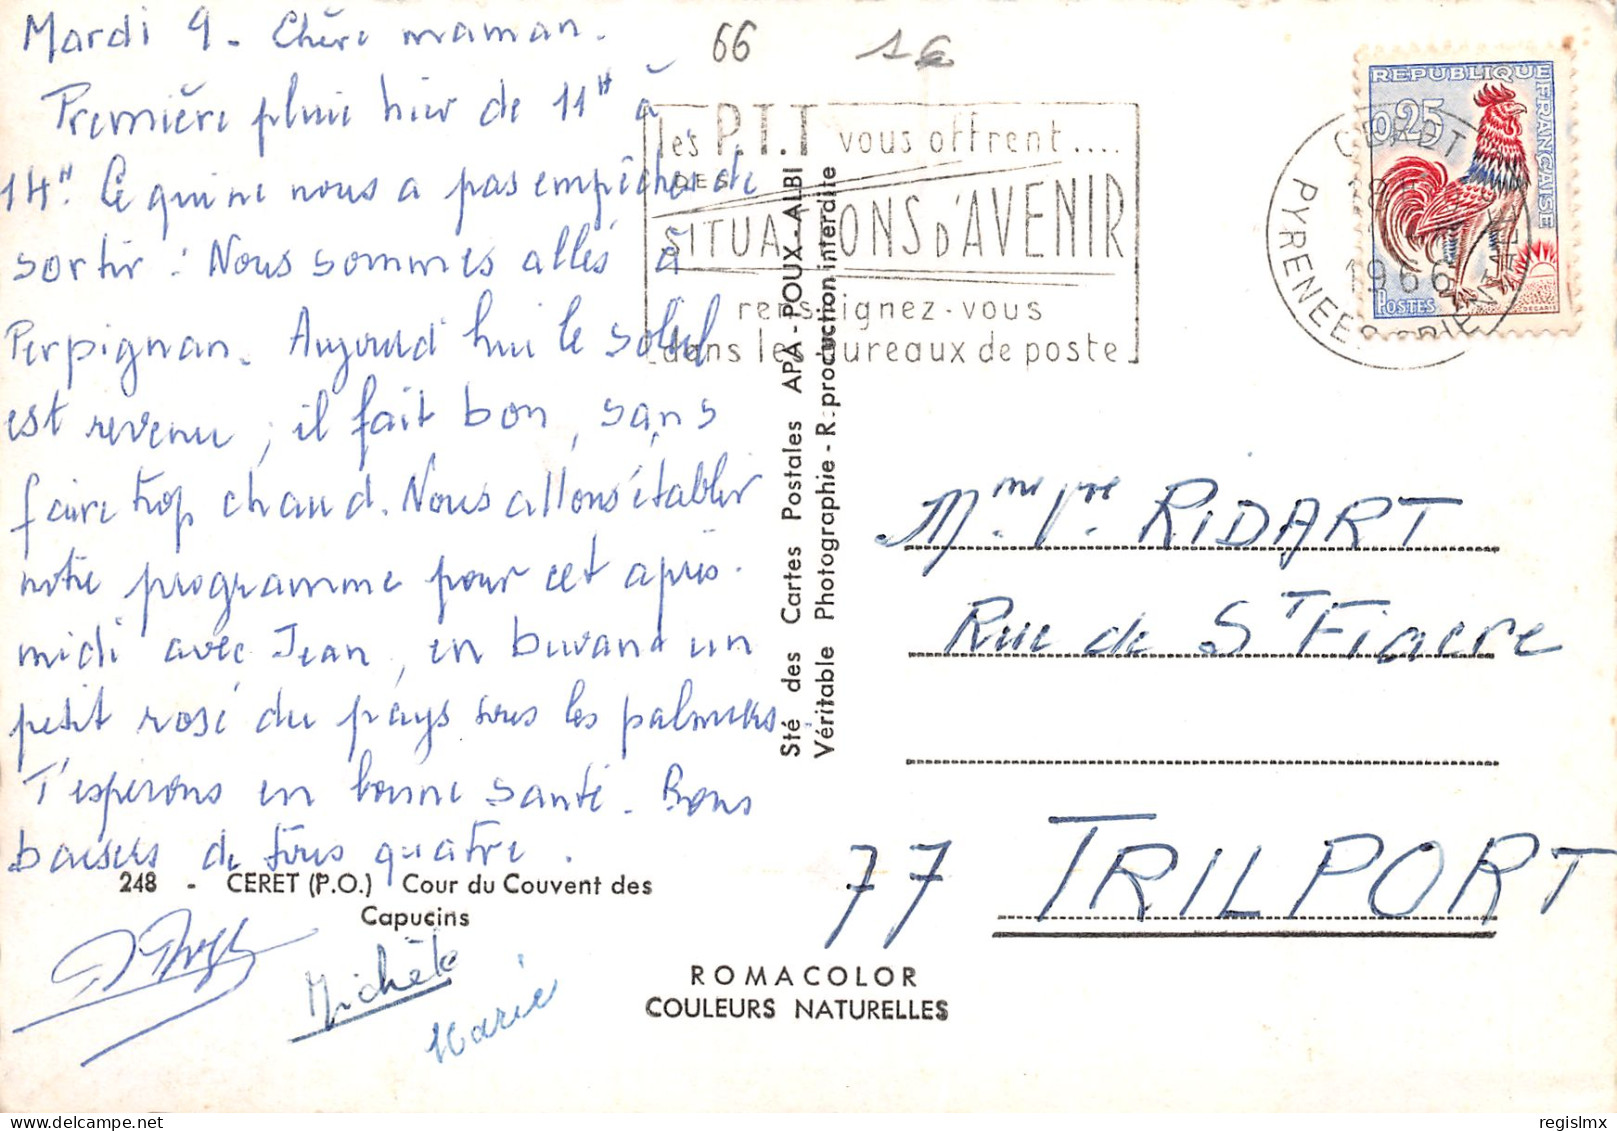 Mardi 9. Chère maman.
Première pluie hier de 11H à
14H. Ce qui ne nous a pas empêchés de
sortir : Nous sommes allés à
Perpignan. Aujourd'hui le soleil
est revenu ; il fait bon, sans
faire trop chaud. Nous allons établir
notre programme pour cet après-
midi avec Jean, en buvant un
petit rosé du pays sous les palmiers
T'espérons en bonne santé. Bons
baisers de tous quatre.
248 - CERET (P.O.) Cour du Couvent des
Capucins
Michèle
Marie
66
16
les P.T.T vous offrent....
DES
SITUATIONS D'AVENIR
renseignez-vous
dans les bureaux de poste
Sté des Cartes Postales APA-POUX-ALBI
Véritable Photographie - Reproduction interdite
CERET
18
1966
PYRENEES-ORIENTALES
REPUBLIQUE FRANÇAISE
0,25
POSTES
DECARIS
Mme Vve RIDART
Rue de St Fiacre
77 TRILPORT
ROMACOLOR
COULEURS NATURELLES
regislmx